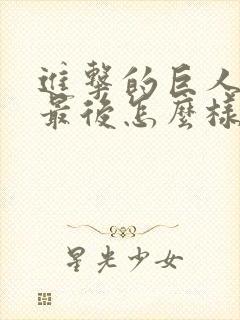 進擊的巨人
最後怎麼樣
星光少女